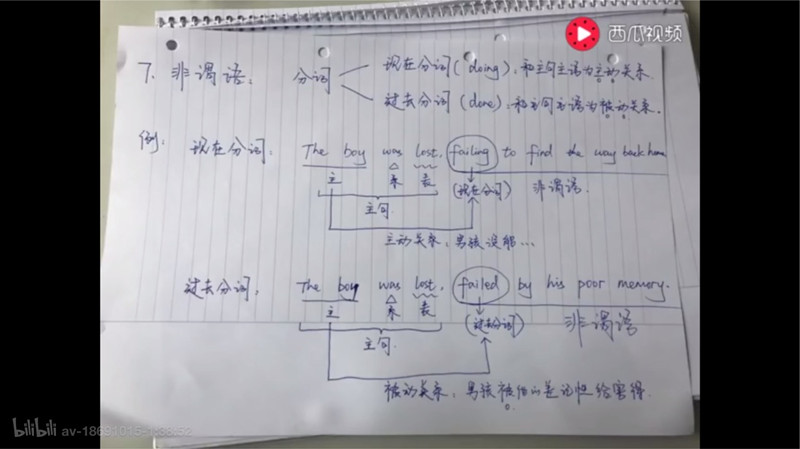 西瓜视频
7. 非谓语: 分词
现在分词(doing):和主句主语为主动关系.
过去分词(done):和主句主语为被动关系.
例: 现在分词: The boy was lost, failing to find the way back home
主 系 表 (现在分词) 非谓语.
主句.
主动关系,男孩没能...
过去分词, The boy was lost, failed by his poor memory.
主 系 表 (过去分词) 非谓语
主句.
被动关系,男孩被他的差记性给害得.
bilibili av-18691015